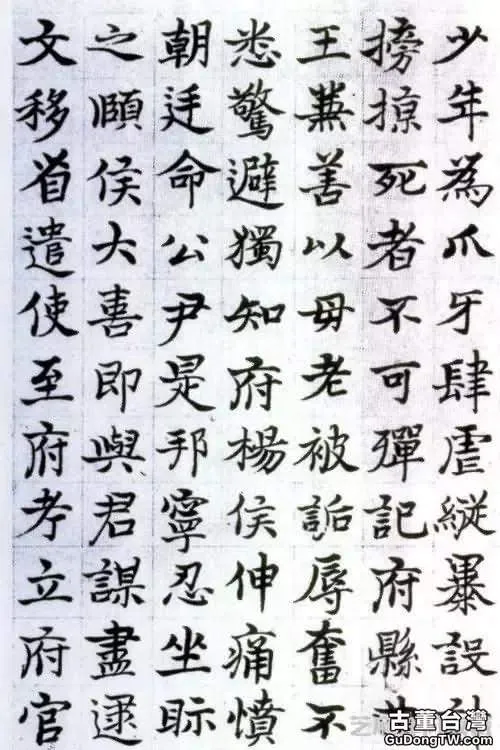 少年為爪牙肆虐縱暴設
搒掠死者不可彈記府縣
王兼善以母老被詬辱奮不
悉驚避獨知府楊侯伸痛憤
朝廷命公尹是邦寧忍坐眎
之頤侯大喜即與君謀盡逮
文移省遣使至府考立府官
古董台灣
GuDongTW.com